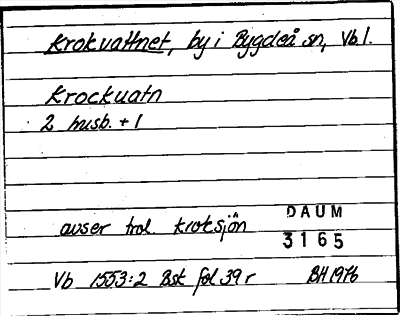 Krokvattnet, by i Bygdeå sn, Vb l.
Krockuatn
2 husb. + 1
avser trol. Kroksjön
DAUM
3165
Vb 1553:2 Bst fol 39 r BH 1976